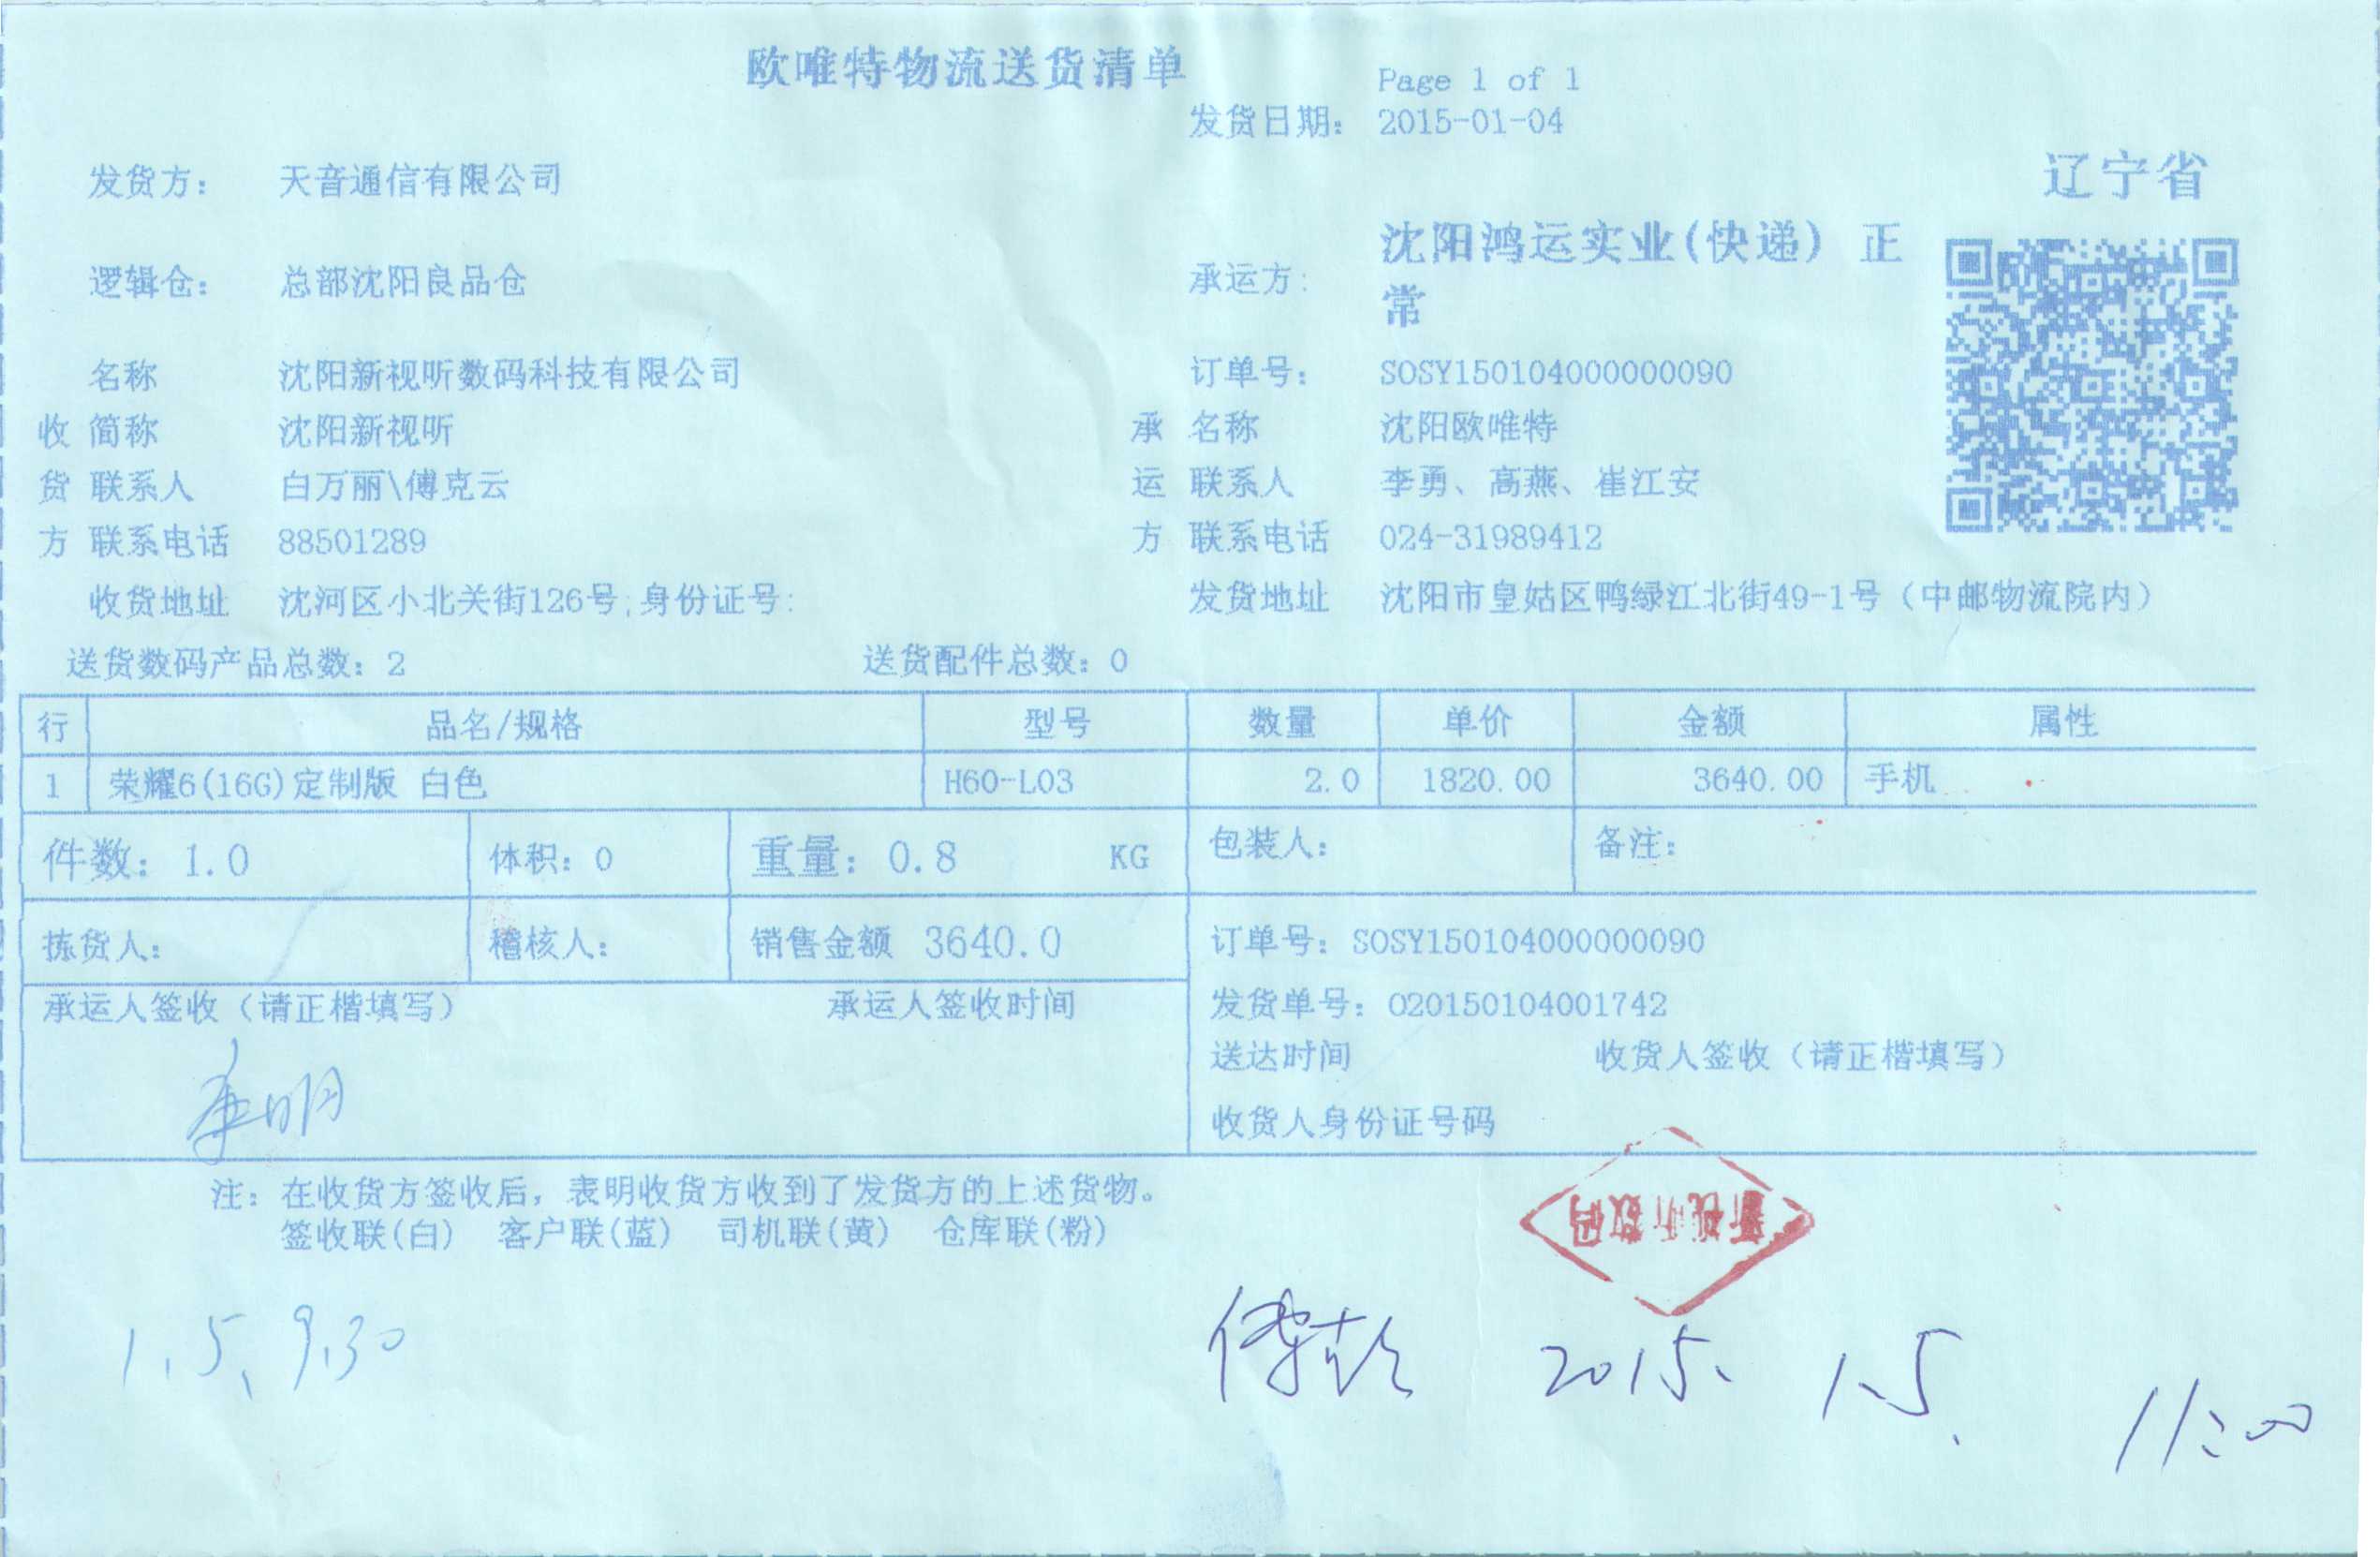 欧唯特物流送货清单
Page 1 of 1
发货日期: 2015-01-04
辽宁省
发货方: 天音通信有限公司
逻辑仓: 总部沈阳良品仓
承运方: 沈阳鸿运实业(快递) 正
常
名称 沈阳新视听数码科技有限公司 订单号: SOSY150104000000090
收 简称 沈阳新视听 承 名称 沈阳欧唯特
货 联系人 白万丽\傅克云 运 联系人 李勇、高燕、崔江安
方 联系电话 88501289 方 联系电话 024-31989412
收货地址 沈河区小北关街126号;身份证号: 发货地址 沈阳市皇姑区鸭绿江北街49-1号（中邮物流院内）
送货数码产品总数: 2 送货配件总数: 0
行 品名/规格 型号 数量 单价 金额 属性
1 荣耀6(16G)定制版 白色 H60-L03 2.0 1820.00 3640.00 手机
件数: 1.0 体积: 0 重量: 0.8 KG 包装人: 备注:
拣货人: 稽核人: 销售金额 3640.0 订单号: SOSY150104000000090
承运人签收（请正楷填写） 承运人签收时间 发货单号: O20150104001742
送达时间 收货人签收（请正楷填写）
收货人身份证号码
注: 在收货方签收后, 表明收货方收到了发货方的上述货物。
签收联(白) 客户联(蓝) 司机联(黄) 仓库联(粉)
新视听数码
1.5、9.30
2015. 1.5. 11:00